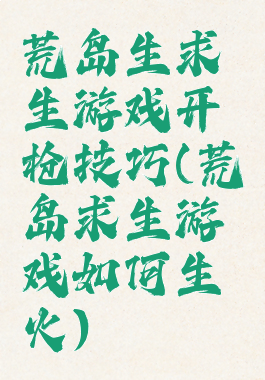 荒岛生求
生游戏开
枪技巧(荒
岛求生游
戏如何生
火)